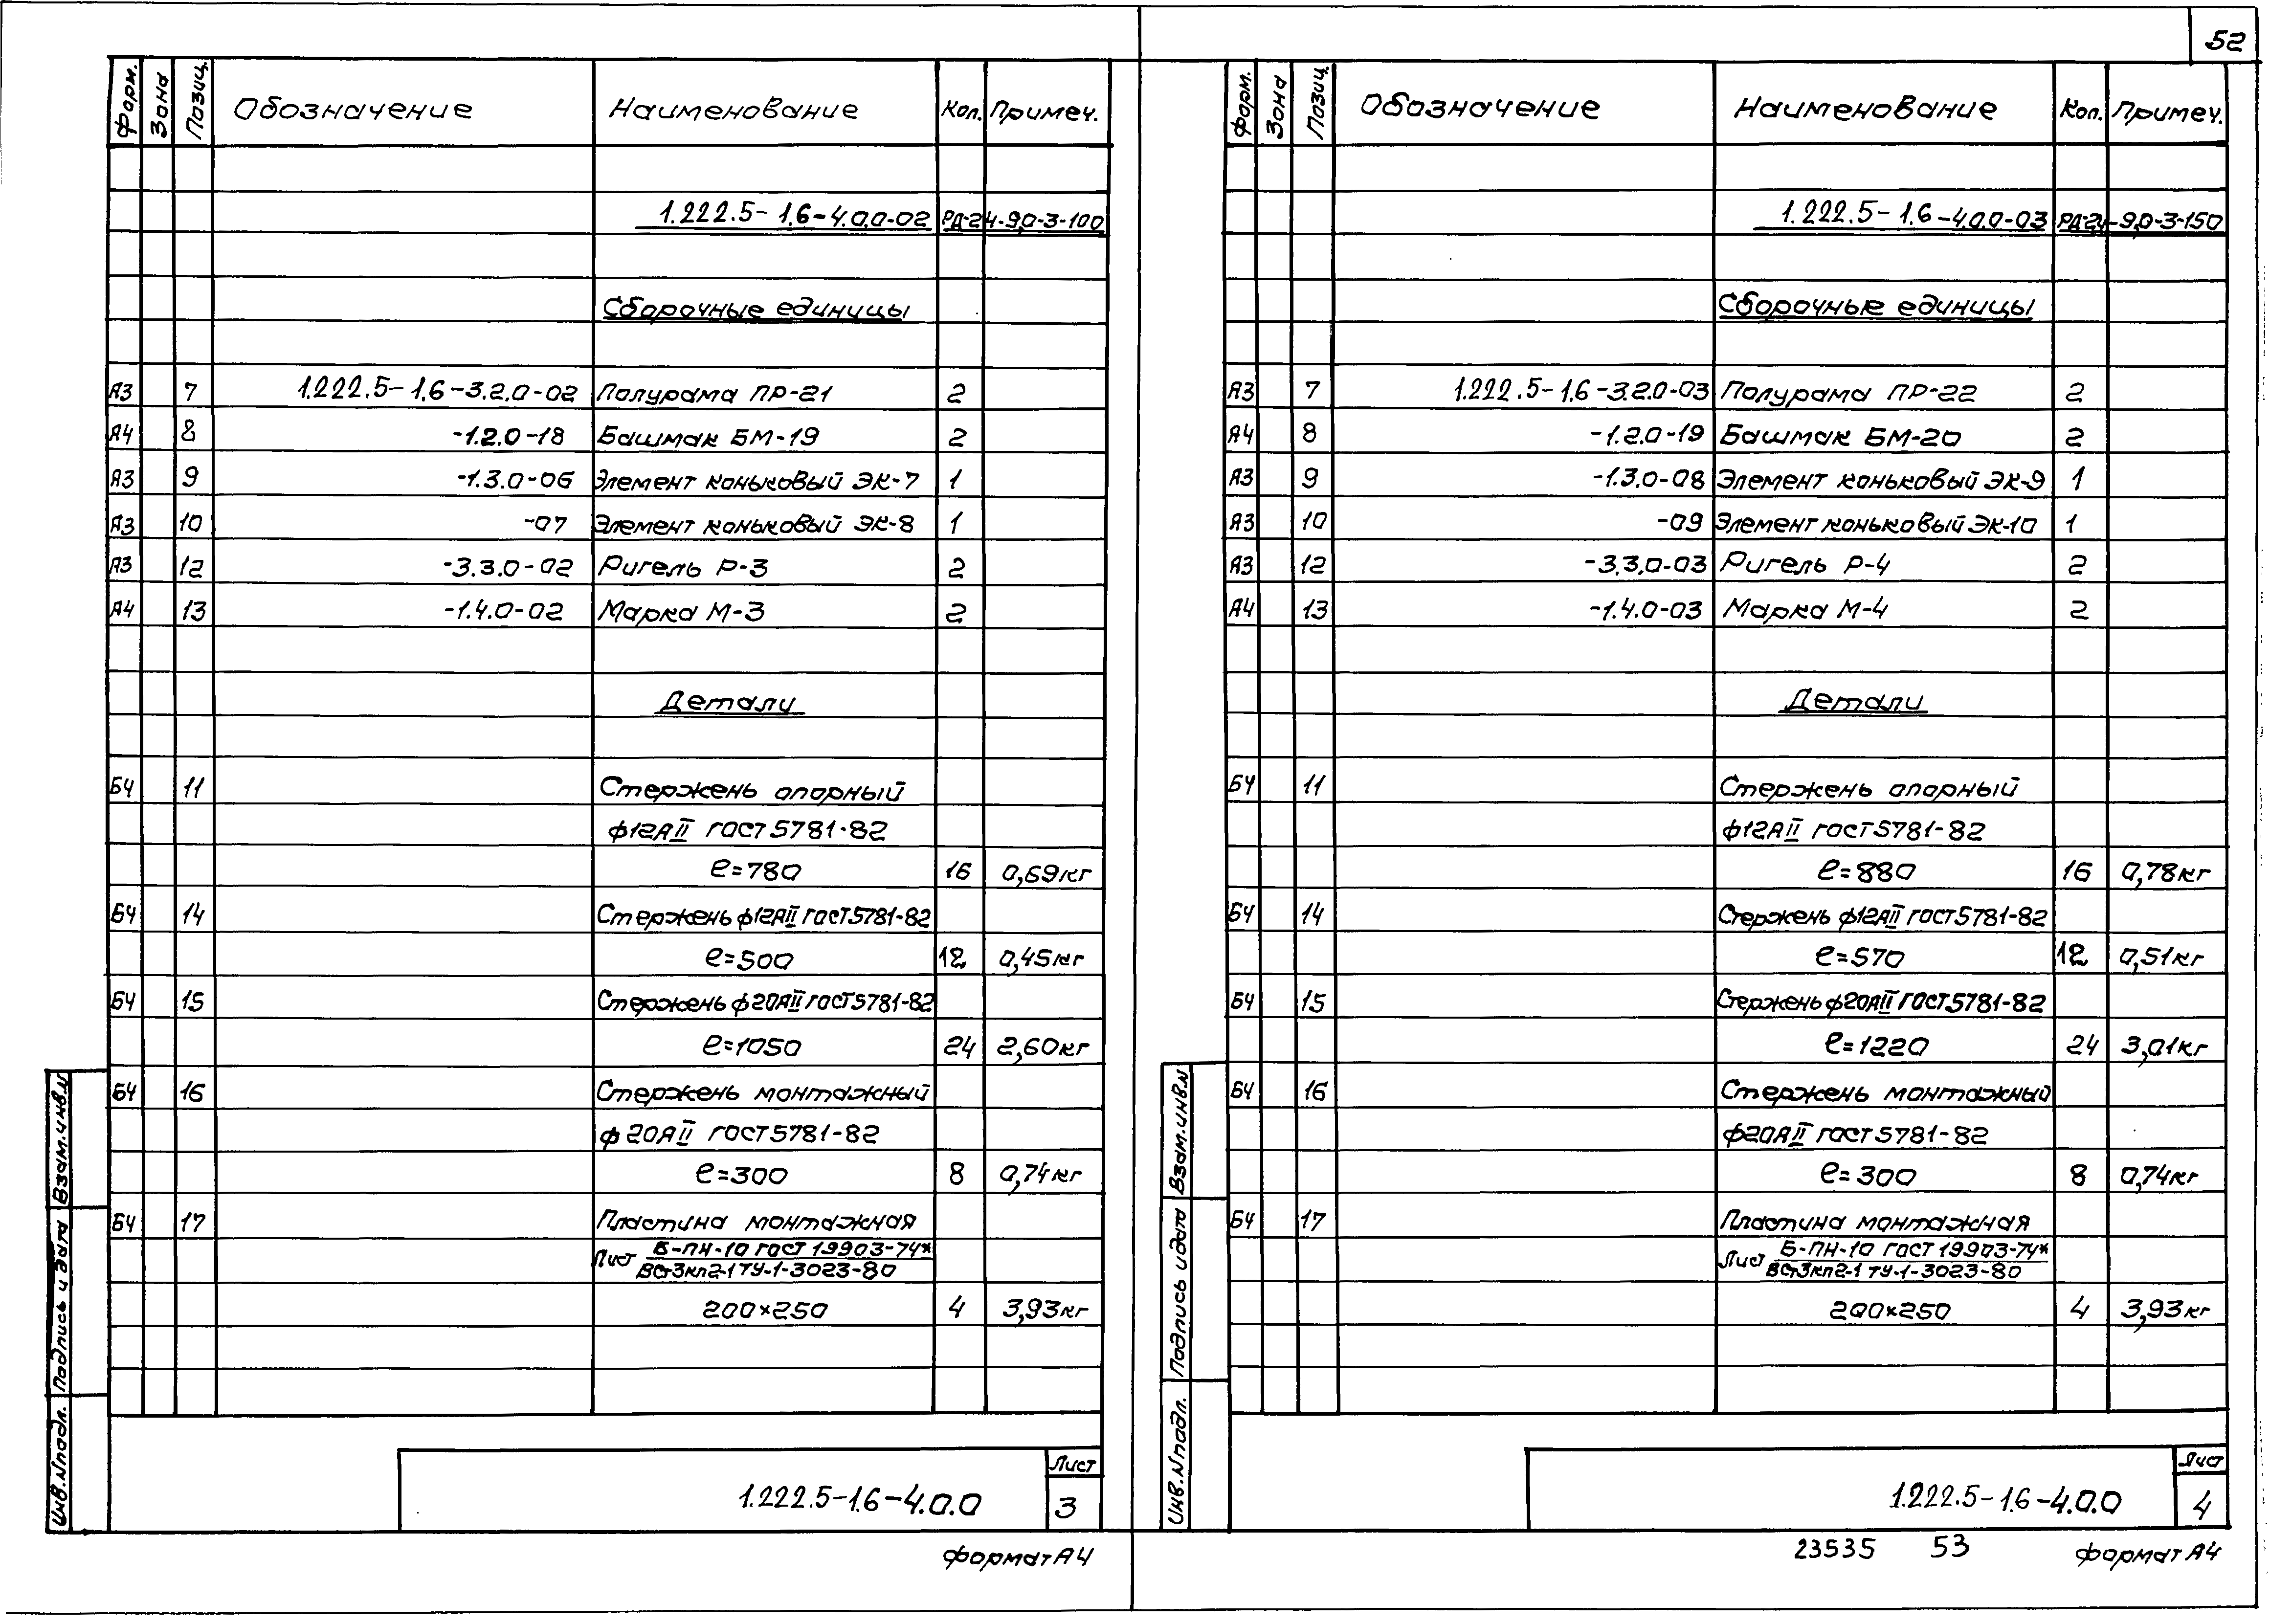 52
Форм. Зона Позиц. Обозначение Наименование Кол. Примеч.
1.222.5-1.6-4.0.0-02 РД-24-9,0-3-100
Сборочные единицы
А3 7 1.222.5-1.6-3.2.0-02 Полурама ПР-21 2
А4 8 -1.2.0-18 Башмак БМ-19 2
А3 9 -1.3.0-06 Элемент коньковый ЭК-7 1
А3 10 -07 Элемент коньковый ЭК-8 1
А3 12 -3.3.0-02 Ригель Р-3 2
А4 13 -1.4.0-02 Марка М-3 2
Детали
БЧ 11 Стержень опорный
ф12АII ГОСТ 5781-82
ℓ=780 16 0,69кг
БЧ 14 Стержень ф12АII ГОСТ 5781-82
ℓ=500 12 0,45кг
БЧ 15 Стержень ф20АII ГОСТ 5781-82
ℓ=1050 24 2,60кг
БЧ 16 Стержень монтажный
ф20АII ГОСТ 5781-82
ℓ=300 8 0,74кг
БЧ 17 Пластина монтажная
Лист Б-ПН-10 ГОСТ 19903-74*
ВСт3кп2-1 ТУ-1-3023-80
200×250 4 3,93кг
Инв.№подл. Подпись и дата Взам.инв.№
1.222.5-1.6-4.0.0
Лист
3
формат А4
Форм. Зона Позиц. Обозначение Наименование Кол. Примеч.
1.222.5-1.6-4.0.0-03 РД-24-9,0-3-150
Сборочные единицы
А3 7 1.222.5-1.6-3.2.0-03 Полурама ПР-22 2
А4 8 -1.2.0-19 Башмак БМ-20 2
А3 9 -1.3.0-08 Элемент коньковый ЭК-9 1
А3 10 -09 Элемент коньковый ЭК-10 1
А3 12 -3.3.0-03 Ригель Р-4 2
А4 13 -1.4.0-03 Марка М-4 2
Детали
БЧ 11 Стержень опорный
ф12АII ГОСТ 5781-82
ℓ=880 16 0,78кг
БЧ 14 Стержень ф12АII ГОСТ 5781-82
ℓ=570 12 0,51кг
БЧ 15 Стержень ф20АII ГОСТ 5781-82
ℓ=1220 24 3,01кг
БЧ 16 Стержень монтажный
ф20АII ГОСТ 5781-82
ℓ=300 8 0,74кг
БЧ 17 Пластина монтажная
Лист Б-ПН-10 ГОСТ 19903-74*
ВСт3кп2-1 ТУ-1-3023-80
200×250 4 3,93кг
Инв.№подл. Подпись и дата Взам.инв.№
1.222.5-1.6-4.0.0
Лист
4
23535 53 формат А4